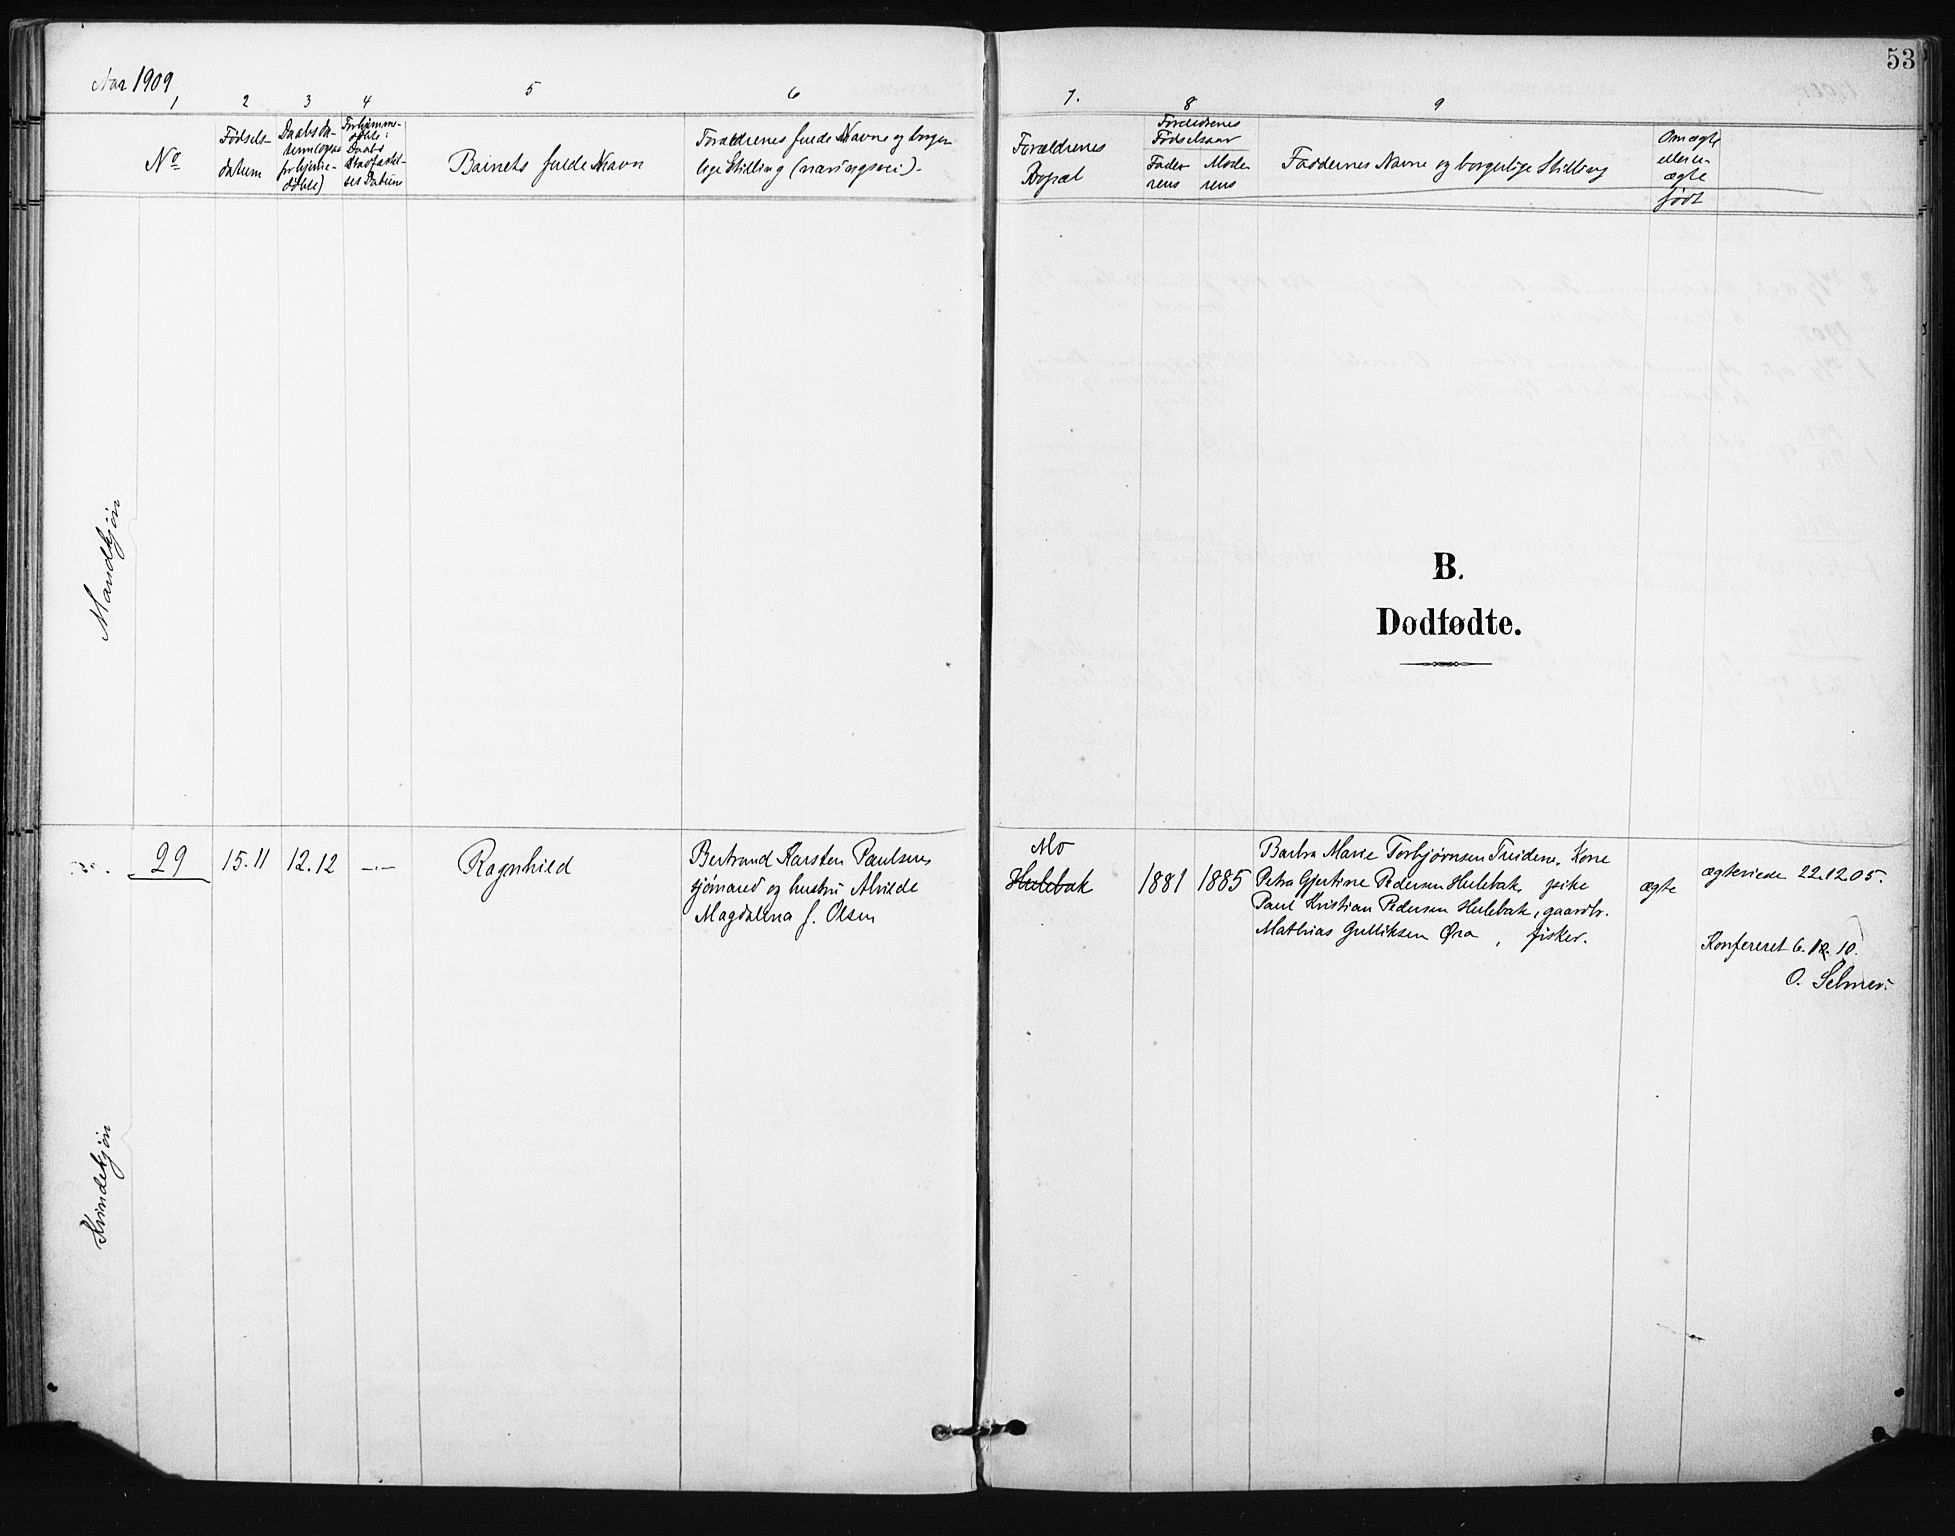 53
Aar 1909
1 2 3 4 5 6
7. 8 9
No
Fødsels-
datum
Daabsda-
tum (ogsaa
for hjemme-
døbte)
Forhjemme-
døbte:
Daabs
Stadfæstel-
ses Datum
Barnets fulde Navn
Forældrenes fulde Navne og borger-
lige Stilling (næringsvei).
Forældrenes
Bopæl
Forældrenes
Fødselsaar
Fade-
rens
Mode-
rens
Faddernes Navne og borgerlige Stilling
Om ægte
eller u-
ægte
født
Mandkjøn
B.
Dødfødte.
29
15.11
12.12
-.-
Ragnhild
Bertrand Karsten Paulsen
sjømand og hustru Alvilde
Magdalena f. Olsen
Mo
Hulebak
1881
1885
Barbra Marie Torbjørnsen Tuiden, Kone
Petra Gjertine Pedersen Hulebak, pike
Paul Kristian Pedersen Hulebak, gaardbr.
Mathias Gulliksen Øra, fisker.
ægte
ægteviede 22.12.05.
Konfereret 6.12.10.
O. Selmer.
Kvindekjøn